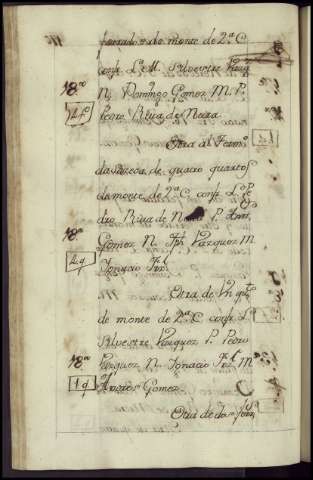 ferrado y dº monte de 2ª C
confª L. M. Silvestre Vazq
18ᵃⁿ N. Domingo Gomez M. P.
Pedro Riva de Neira
Otra al Term
da Poza de quatro quartos
de monte de 2ª C confª L. Pe
dro Riva de P. Anº
18ᵃⁿ Gomez N. Jph Vazquez M
4 q Ignacio Frz
Otra de Vn qᵗº
de monte de 2ª C confª L.
Silvestre Vazquez P. Pedro
18ᵃⁿ Vazquez N. Ignacio Frz M
1 q Andres Gomez
Otra de dos